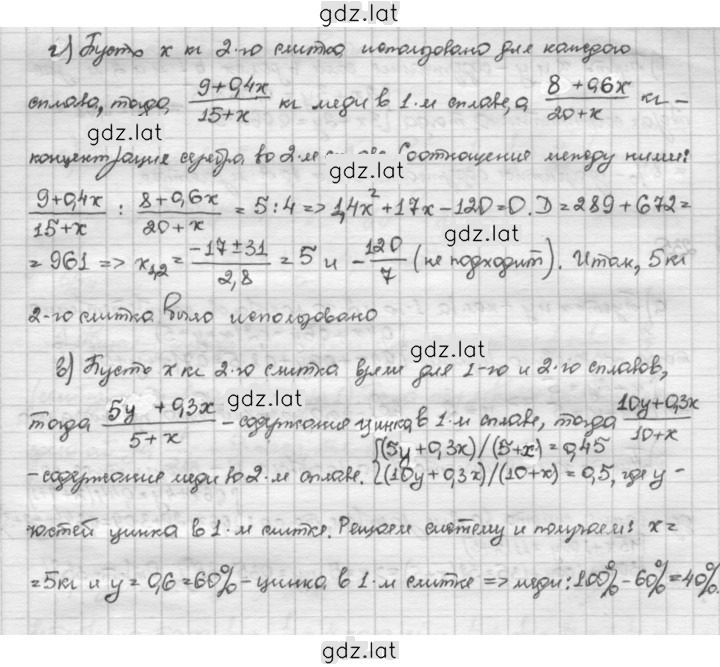 gdz.lat
г) Пусть x кг 2-го слитка использовано для каждого
сплава, тогда (9+0,4x)/(15+x) кг меди в 1-м сплаве, а (8+0,6x)/(20+x) кг –
gdz.lat
концентрация серебра во 2-м Соотношение между ними:
(9+0,4x)/(15+x) : (8+0,6x)/(20+x) = 5:4 => 1,4x² + 17x - 120 = 0. D = 289 + 672 =
gdz.lat
= 961 => x₁,₂ = (-17±31)/2,8 = 5 и -120/7 (не подходит). Итак, 5 кг
2-го слитка было использовано
gdz.lat
в) Пусть x кг 2-го слитка взяли для 1-го и 2-го сплавов,
тогда (5y + 0,3x)/(5+x) - содержание цинка в 1-м сплаве, тогда (10y+0,3x)/(10+x)
gdz.lat
- содержание меди во 2-м сплаве. {(5y+0,3x)/(5+x) = 0,45 (10y+0,3x)/(10+x) = 0,5, где y -
gdz.lat
частей цинка в 1-м слитке. Решаем систему и получаем: x =
= 5кг и y = 0,6 = 60% - цинка в 1-м слитке => меди: 100% - 60% = 40%.
gdz.lat